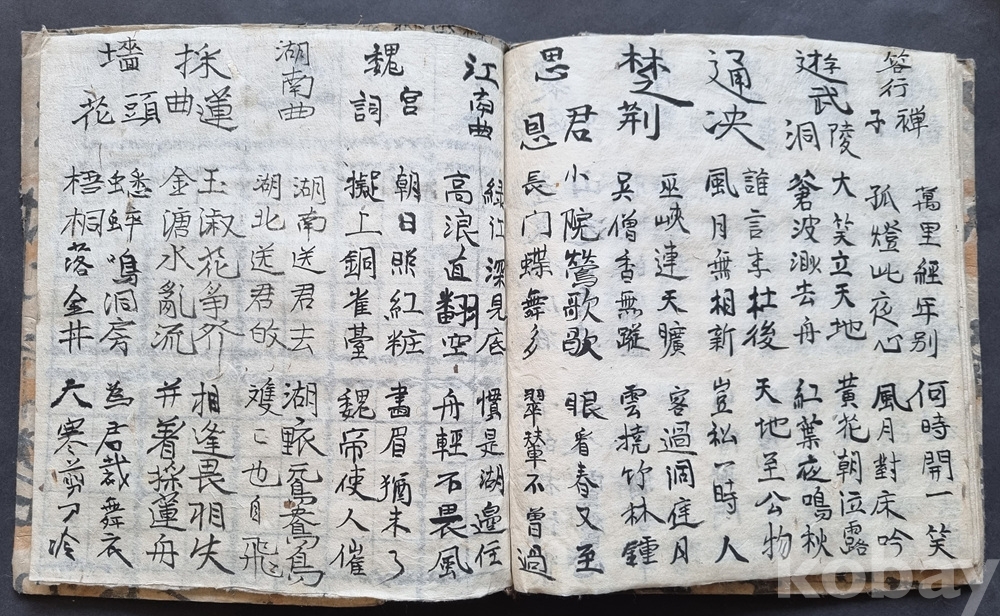 答行禪子
萬里經年別 何時開一笑
孤燈此夜心 風月對床吟
遊武陵洞
大笑立天地 黃花朝泣露
蒼波渺去舟 紅葉夜鳴秋
通決
誰言李杜後 天地至公物
風月無相新 豈私一時人
楚荊
巫峽連天曠 客過洞庭月
吳僧香無蹤 雲撓竹林鍾
思君恩
小院鶯歌歇 眼看春又至
長门蝶舞多 翠輦不曾過
江南曲
綠江深見底 慣是湖邊住
高浪直翻空 舟輕不畏風
魏宮詞
朝日照紅粧 畫眉猶未了
擬上銅雀臺 魏帝使人催
湖南曲
湖南送君去 湖鴛鴦鳥
湖北送君的 雙〻也自飛
採蓮曲
玉漵花爭 相逢畏相失
金塘水亂流 并着採蓮舟
墻頭花
蟋蟀鳴洞房 為君裁舞衣
梧桐落金井 天寒剪刀冷
kobay